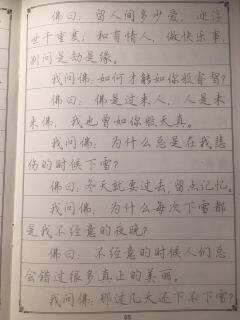 佛曰：留人间多少爱，迎浮
世千重变；和有情人，做快乐事，
别问是劫是缘。
我问佛：如何才能如你般睿智？
佛曰：佛是过来人，人是未
来佛，我也曾如你般天真。
我问佛：为什么总是在我悲
伤的时候下雪？
佛曰：冬天就要过去，留点记忆。
我问佛：为什么每次下雪都
是我不经意的夜晚？
佛曰：不经意的时候人们总
会错过很多真正的美丽。
我问佛：那过几天还下不下雪？